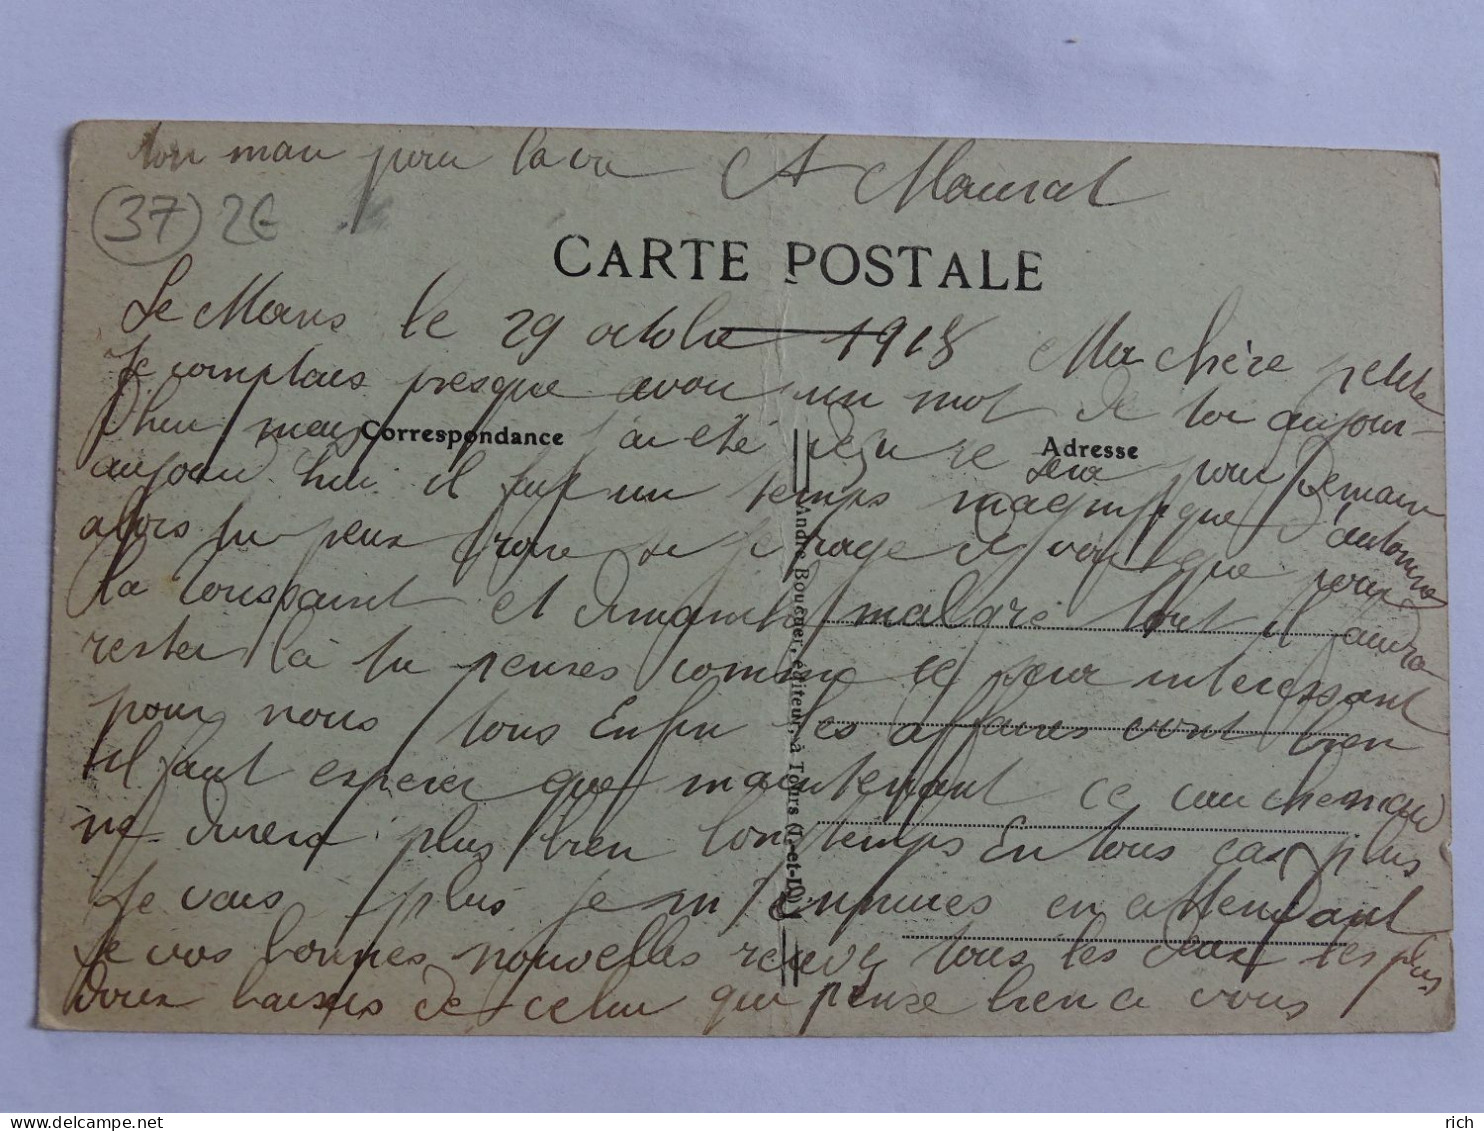 ton mari pour la vie A Maurat
(37) 2€
CARTE POSTALE
Le Mans le 29 octobre 1918 Ma chère petite
Je comptais presque avoir un mot de toi aujour-
d'hui mais j'ai été déçu ce sera pour demain
Correspondance
Adresse
aujourd'hui il fait un temps magnifique d'automne
alors tu peux croire si je rage de voir que pour
la Toussaint et dimanche malgré tout il faudra
rester là tu penses comme ce sera interessant
pour nous tous Enfin les affaires vont bien
il faut esperer que maintenant ce cauchemard
ne durera plus bien longtemps En tous cas plus
Je vais plus je m'ennuies en attendant
de vos bonnes nouvelles recevez tous les deux les plus
doux baisers de celui qui pense bien a vous
André Bougner, éditeur, à Tours (I.-et-L.)
rich